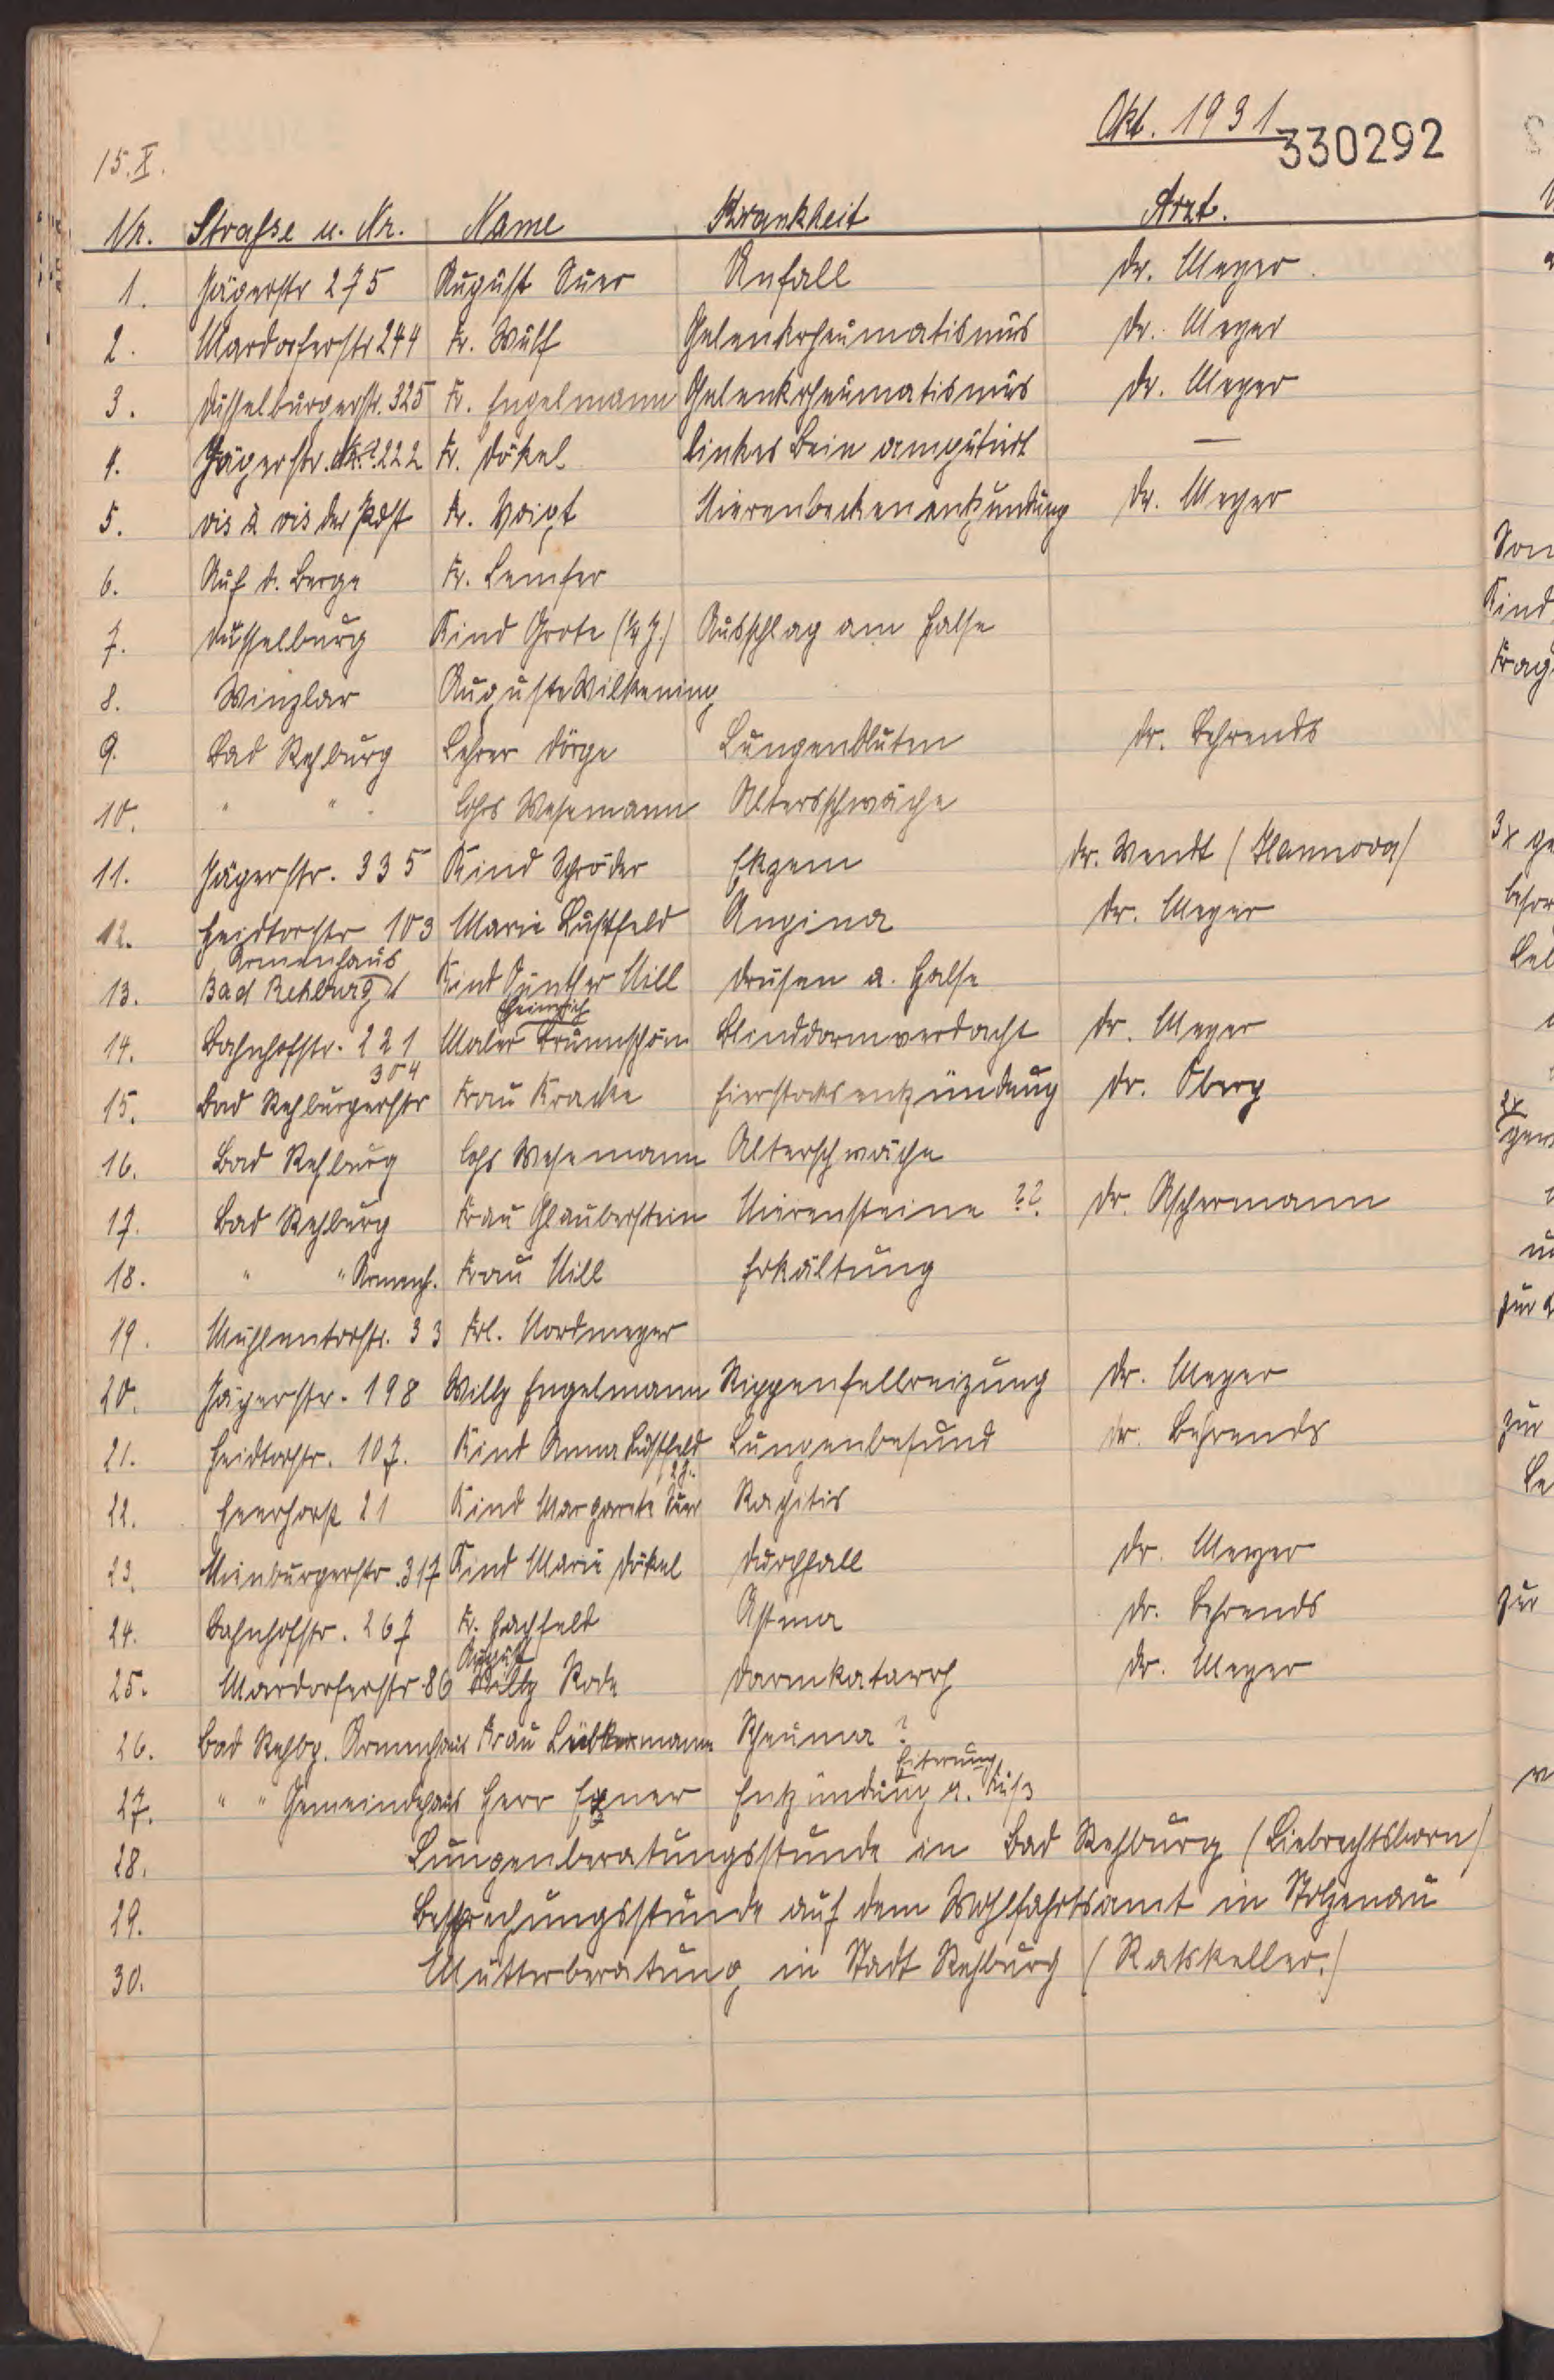 Okt. 1931
330292
15.X.
Nr. Strasse u. Nr. Name Krankheit Arzt.
1. Jägerstr 275 August Suer Anfall Dr. Meyer.
2. Mardorferstr 244 Fr. Wulf Gelenkrheumatismus Dr. Meyer
3. Düsselburgerstr. 325 Fr. Engelmann Gelenkrheumatismus Dr. Meyer
4. Jägerstr. Nr. 222 Fr. Dökel linkes Bein amputiert —
5. vis à vis der Post Fr. Voigt Nierenbeckenentzündung Dr. Meyer
6. Auf d. Berge Fr. Lemfer
7. Düsselburg Kind Grote (¼ J.) Ausschlag am Halse
8. Winzlar Auguste Wilkening
9. Bad Rehburg Lehrer Dörge Lungenbluten Dr. Behrends
10. " " Wesemann Altersschwäche
11. Jägerstr. 335 Kind Schröder Ekzem Dr. Wendt (Hannover)
12. Heidtorstr 103 Marie Lustfeld Angina Dr. Meyer
Armenhaus
13. Bad Rehburg Kind Günther Nill Drüsen a. Halse
Heinrich
14. Bahnhofstr. 221 Maler Brunnschön Blinddarmverdacht Dr. Meyer
304
15. Bad Rehburgerstr Frau Kracke Eierstocksentzündung Dr. Oberg
16. Bad Rehburg Wesemann Alterschwäche
17. Bad Rehburg Frau Glauberstein Nierensteine ?? Dr. Aschermann
18. " " Armenh. Frau Nill Erkältung
19. Mühlentorstr. 33 Frl. Nordmeyer
20. Jägerstr. 198 Willy Engelmann Rippenfellreizung Dr. Meyer
21. Heidtorstr. 107. Kind Anna Lustfeld Lungenbefund Dr. Behrends
12 J.
22. Heerhorst 21 Kind Margarete Suer Rachitis
23. Nienburgerstr. 317 Kind Marie Dökel Durchfall Dr. Meyer
24. Bahnhofstr. 267 Fr. Hachfeld Astma Dr. Behrends
August
25. Mardorferstr 86 Willy Rode Darmkatarrh Dr. Meyer
26. Bad Rehbg. Armenhaus Frau Lübkemann Rheuma ?
Eiterung
27. " " Gemeindehaus Herr Exner Entzündung a. Fuß
28. Lungenberatungsstunde in Bad Rehburg (Liebrechtsborn)
29. Besprechungsstunde auf dem Wohlfahrtsamt in Stolzenau
30. Mütterberatung in Stadt Rehburg (Ratskeller.)